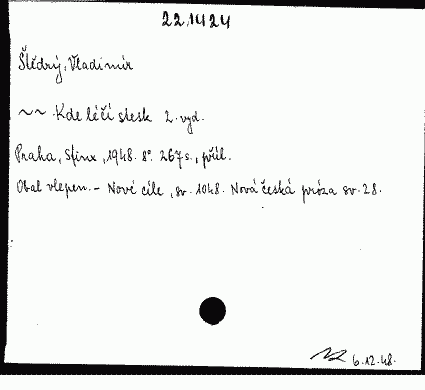 22.1424
Štědrý, Vladimír
~~ Kde léčí stesk 2. vyd.
Praha, Sfinx, 1948. 8°. 267 s., příl.
Obal vlepen. - Nové cíle, sv. 1048. Nová česká próza sv. 28.
6.12.48.